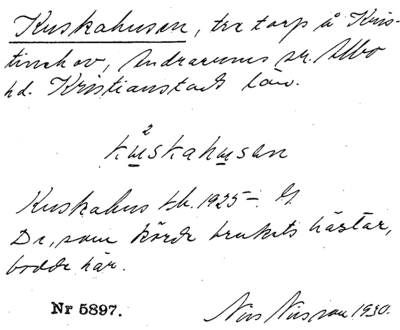 Kuskahusen, tre torp å Kris-
tinehov, Andrarums sn. Albo
hd. Kristianstads län.
2
kuskahusen
Kuskahus tb. 1925-.
De, som körde brukets hästar,
bodde här.
Nr 5897.
Nils Nilsson 1930.